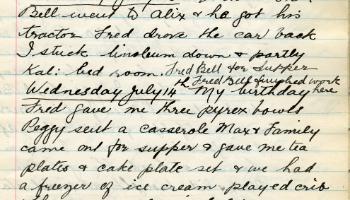 Bell went to Alix & he got his
tractor Fred drove the car back
I stuck linoleum down & partly
Kal. bed room Fred Bell for supper
Fred Bell finished work here
Wednesday July 14th My birthday
Fred gave me three pyrex bowls
Peggy sent a casserole Max & Family
came out for supper & gave me tea
plates & cake plate set & we had
a freezer of ice cream played crib